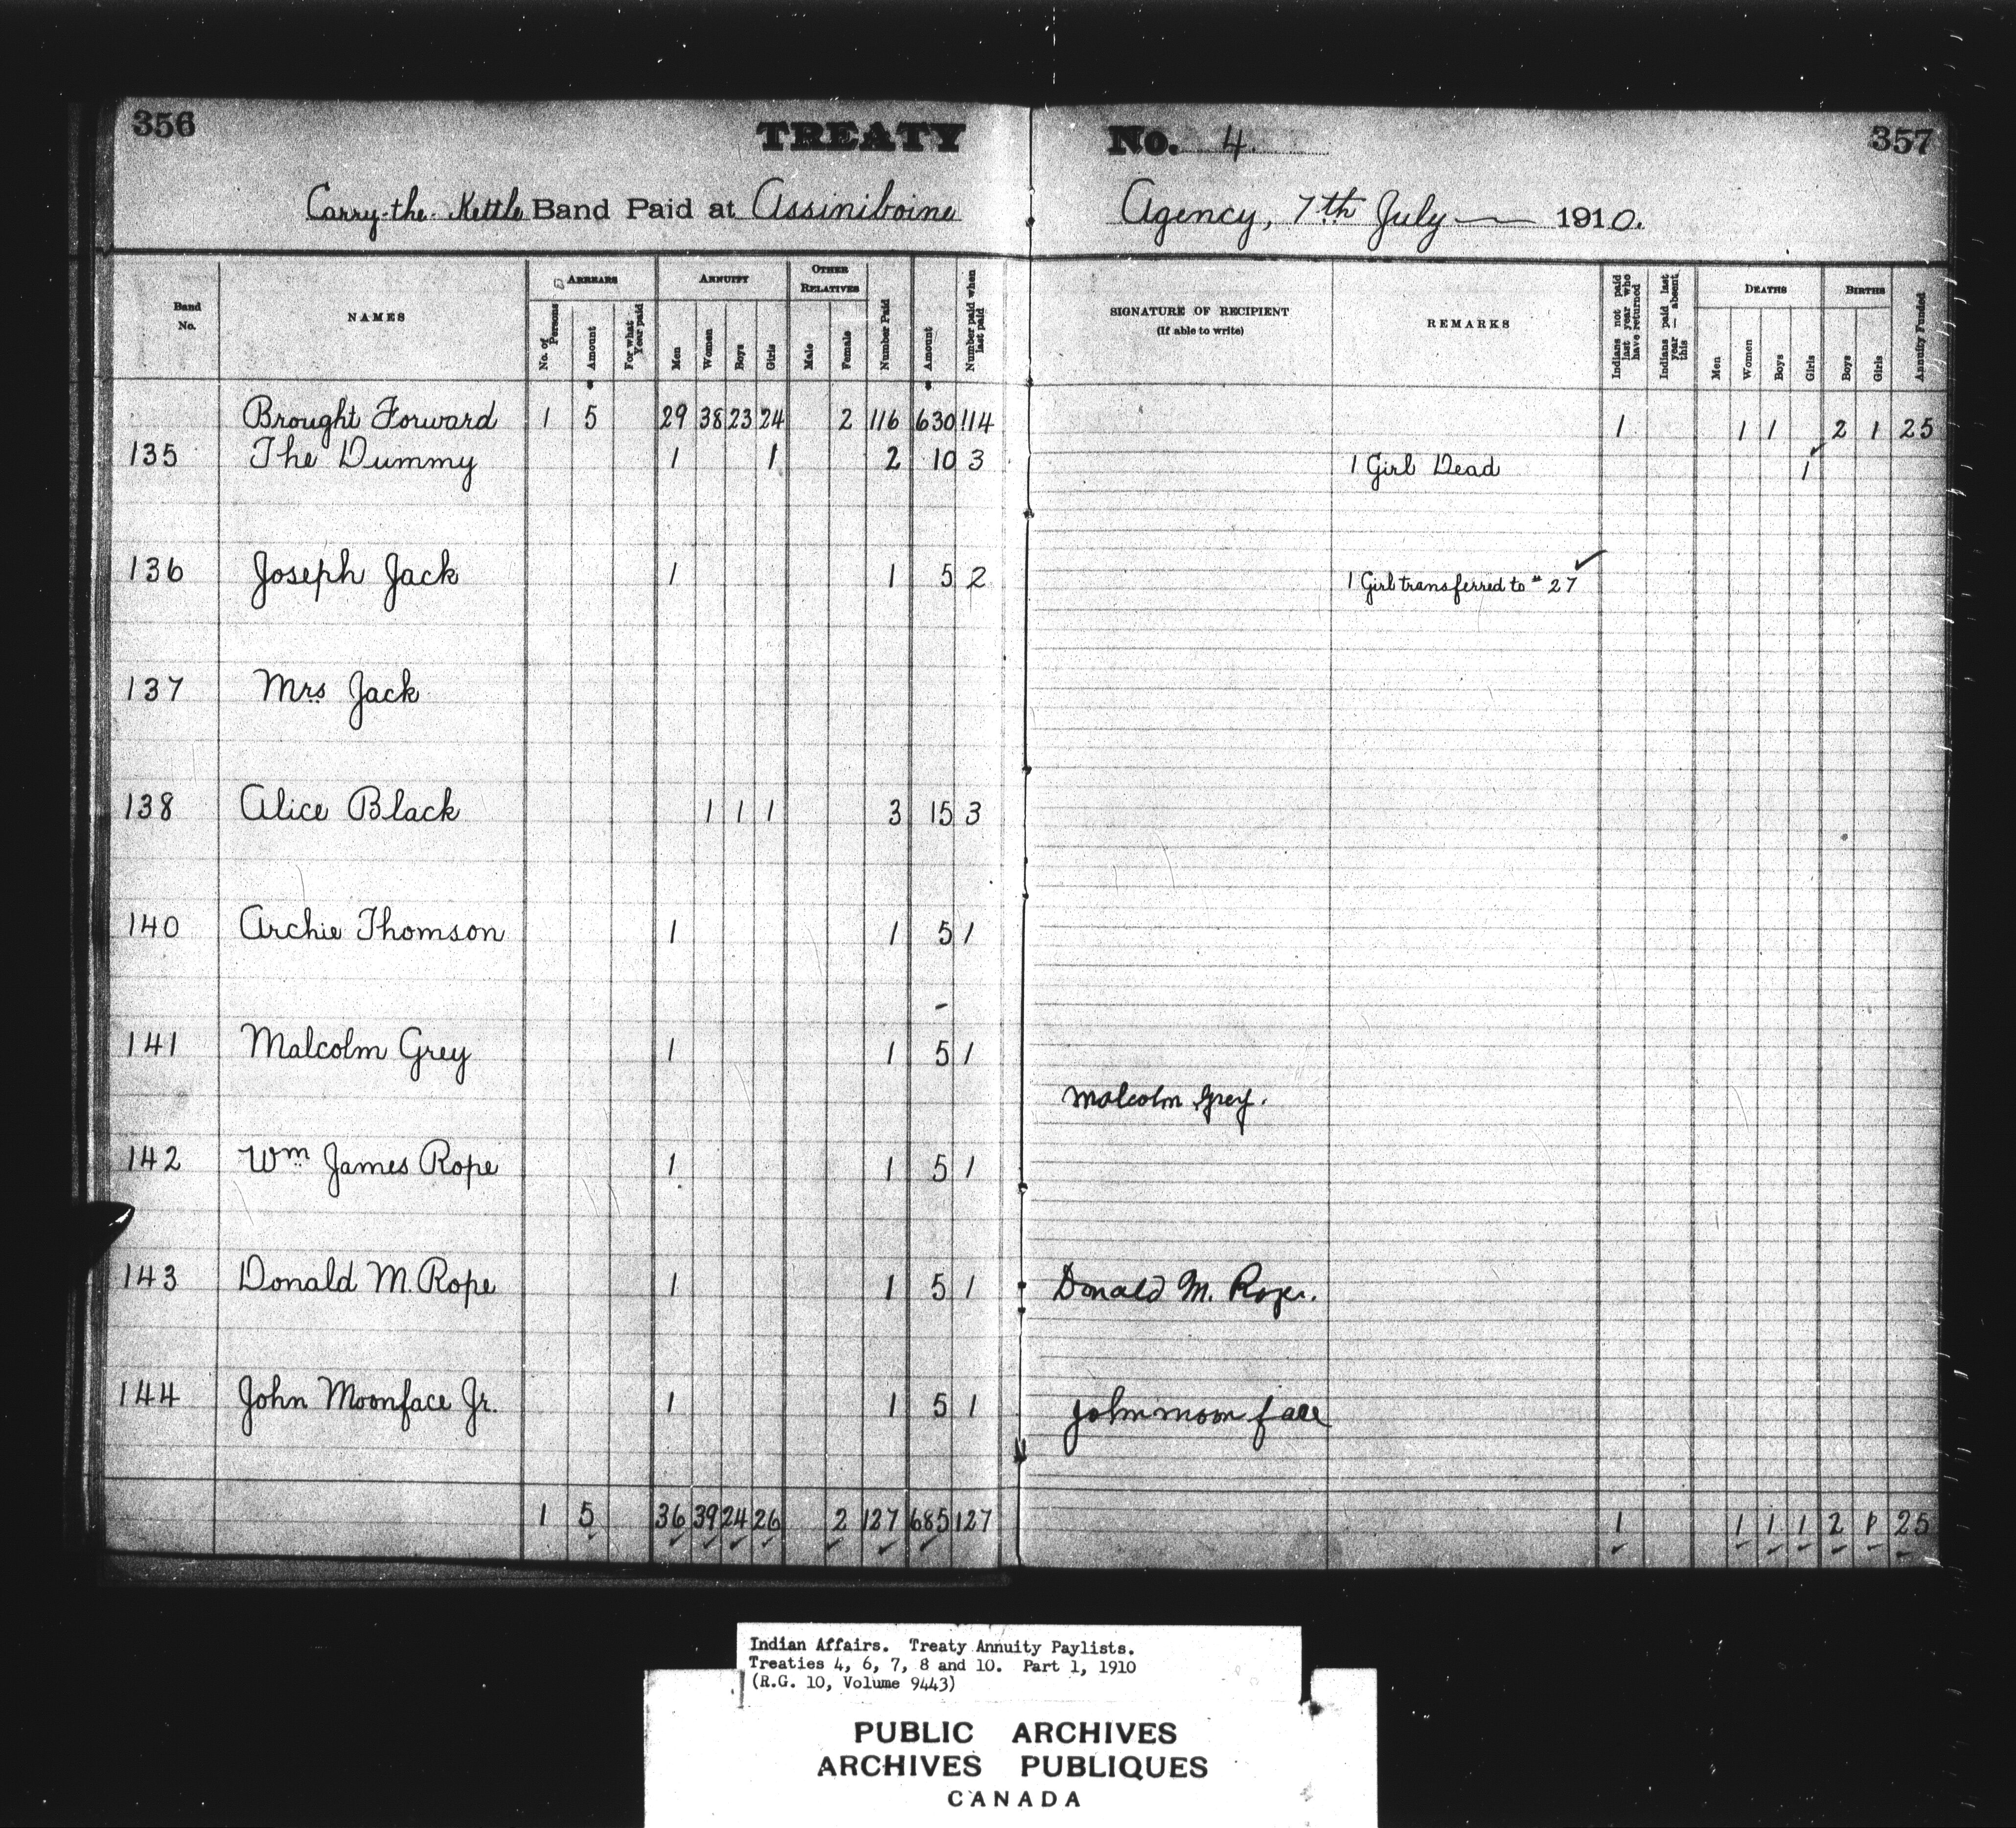 356 TREATY No. 4. 357
Carry-the-Kettle Band Paid at Assiniboine Agency, 7th July 1910.
Band No. NAMES ARREARS No. of Persons Amount For what Year paid ANNUITY Men Women Boys Girls OTHER RELATIVES Male Female Number Paid Amount Number paid when last paid SIGNATURE OF RECIPIENT (If able to write) REMARKS Indians not paid last year who have returned Indians paid last year — absent this DEATHS Men Women Boys Girls BIRTHS Boys Girls Annuity Funded
Brought Forward 1 5 29 38 23 24 2 116 630 114 1 1 1 2 1 25
135 The Dummy 1 1 2 10 3 1 Girl Dead 1
136 Joseph Jack 1 1 5 2 1 Girl transferred to # 27
137 Mrs Jack
138 Alice Black 1 1 1 3 15 3
140 Archie Thomson 1 1 5 1
141 Malcolm Grey 1 1 5 1
Malcolm Grey.
142 Wm James Rope 1 1 5 1
143 Donald M. Rope 1 1 5 1 Donald M. Rope.
144 John Moonface Jr. 1 1 5 1 John moon face
1 5 36 39 24 26 2 127 685 127 1 1 1 1 2 1 25
Indian Affairs. Treaty Annuity Paylists.
Treaties 4, 6, 7, 8 and 10. Part 1, 1910
(R.G. 10, Volume 9443)
PUBLIC ARCHIVES
ARCHIVES PUBLIQUES
CANADA